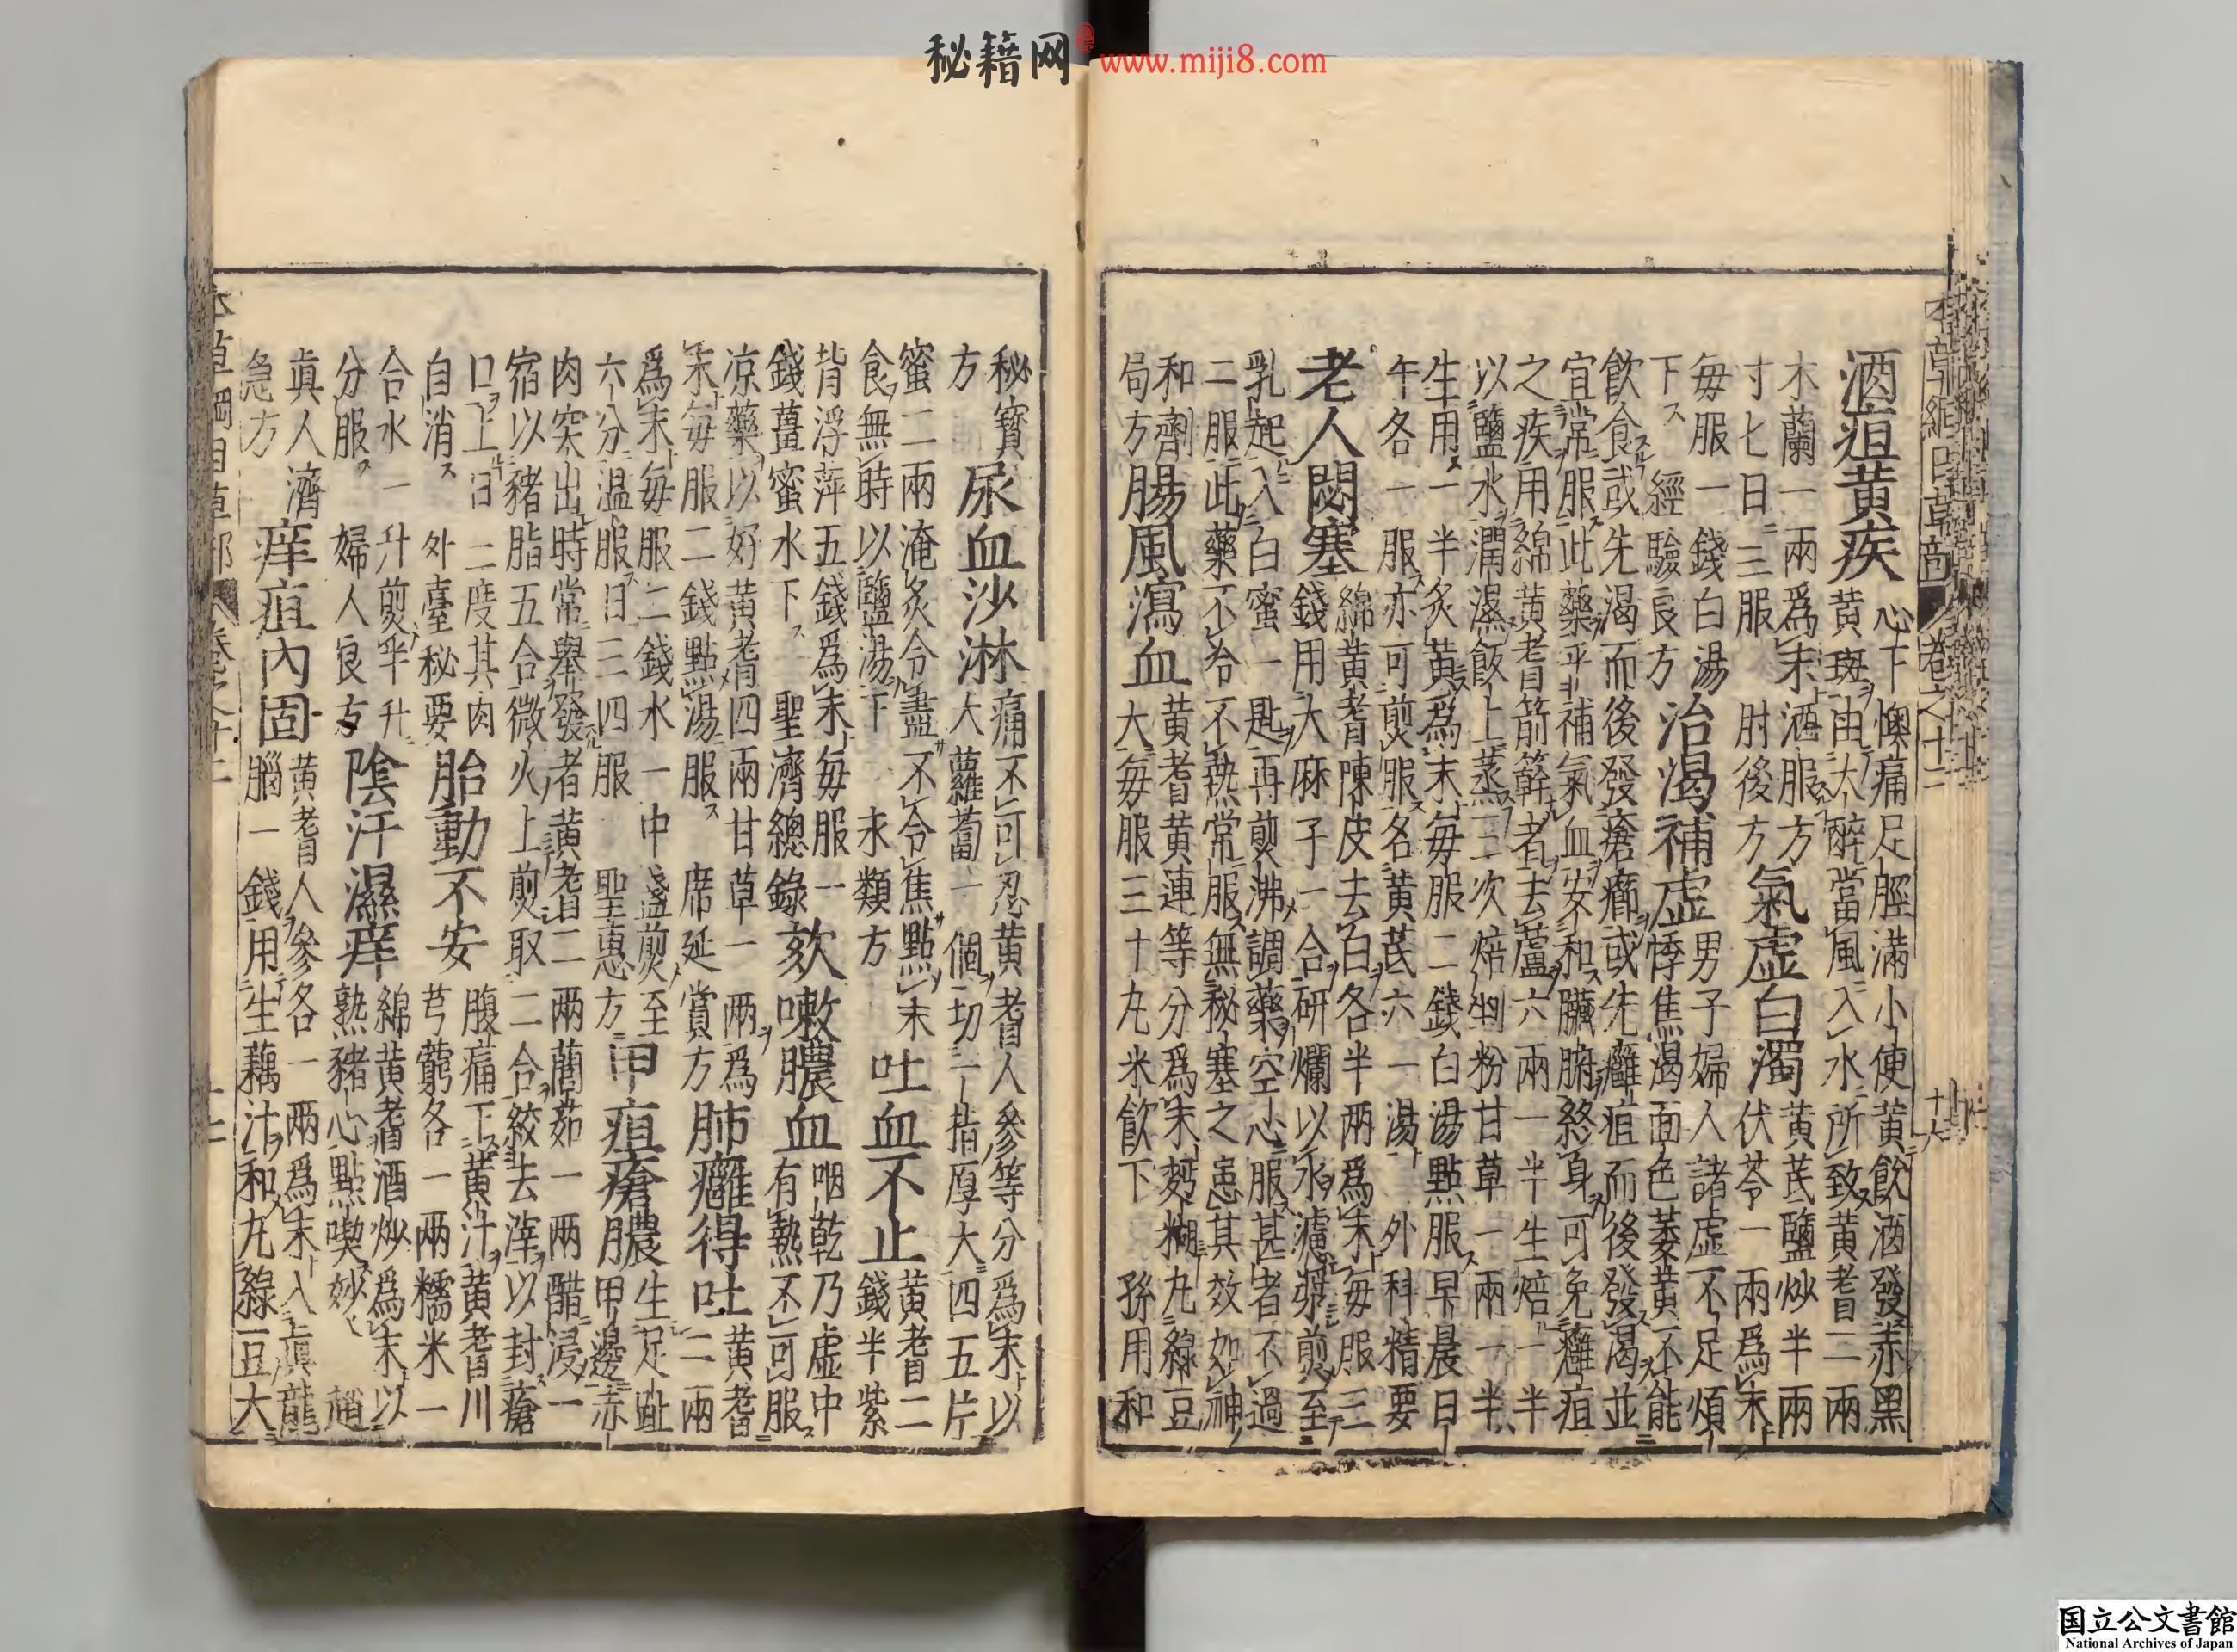 秘籍网 www.miji8.com
本草綱目草部 卷之十二 十八
酒疸黄疾
心下懊痛足脛滿小便黄飲酒發赤黒
黄斑由大醉當風入水所致黄耆二兩
木蘭一兩爲末酒服方
寸七日三服 肘後方
氣虚白濁
黄芪鹽炒半兩
伏苓一兩爲末
毎服一錢白湯
下 經驗良方
治渴補虚
男子婦人諸虚不足煩
悸焦渴面色萎黄不能
飲食或先渴而後發瘡癤或先癰疽而後發渴並
宜常服此藥平補氣血安和臟腑終身可免癰疽
之疾用綿黄耆箭簳者去蘆六兩一半生焙一半
以鹽水潤濕飯上蒸三次焙剉粉甘草一兩一半
生用一半炙黄爲末毎服二錢白湯點服早晨日
午各一服亦可煎服名黄芪六一湯 外科精要
老人閟塞
綿黄耆陳皮去白各半兩爲末毎服三
錢用大麻子一合研爛以水濾漿煎至
乳起入白蜜一匙再煎沸調藥空心服甚者不過
二服此藥不冷不熱常服無秘塞之患其效如神
和劑
局方
腸風瀉血
黄耆黄連等分爲末麪糊丸緑豆
大毎服三十丸米飲下 孫用和
秘寳
方
尿血沙淋
痛不可忍黄耆人參等分爲末以
大蘿蔔一個切一指厚大四五片
蜜二兩淹炙令盡不令焦點末
食無時以鹽湯下 永類方
吐血不止
黄耆二
錢半紫
背浮萍五錢爲末毎服一
錢薑蜜水下 聖濟總錄
欬嗽膿血
咽乾乃虚中
有熱不可服
凉藥以好黄耆四兩甘草一兩爲
末毎服二錢點湯服 席延賞方
肺癰得吐
黄耆
二兩
爲末毎服二錢水一中盞煎至
六分温服日三四服 聖惠方
甲疽瘡膿
生足趾
甲邊赤
肉突出時常舉發者黄耆二兩䕡茹一兩醋浸一
宿以豬脂五合微火上煎取二合絞去滓以封瘡
口上日二度其肉
自消 外臺秘要
胎動不安
腹痛下黄汁黄耆川
芎藭各一兩糯米一
合水一升煎半升
分服 婦人良方
陰汗濕痒
綿黄耆酒炒爲末以
熟豬心點喫妙 趙
眞人濟
急方
痒疽内固
黄耆人參各一兩爲末入眞龍
腦一錢用生藕汁和丸緑豆大
本草綱目草部 卷之十二
国立公文書館
National Archives of Japan